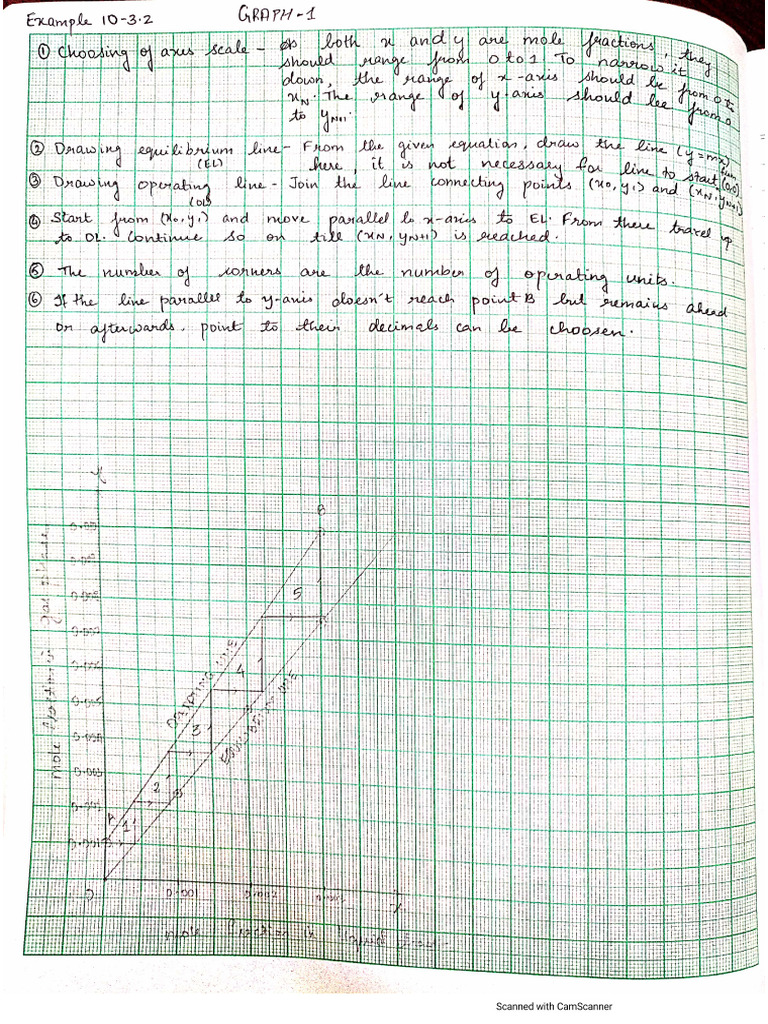 Example 10-3.2 GRAPH-1
① Choosing of axes scale - As both x and y are mole fractions, they
should range from 0 to 1 To narrow it
down, the range of x-axis should be from 0 to
xN. The range of y-axis should be from 0
to yN+1.
② Drawing equilibrium line - From the given equation, draw the line (y=mx)
(EL) here, it is not necessary for line to start from (0,0)
③ Drawing operating line - Join the line connecting points (x0, y1) and (xN, yN+1)
(OL)
④ Start from (x0, y1) and move parallel to x-axis to EL. From there travel up
to OL. Continue so on till (xN, yN+1) is reached.
⑤ The number of corners are the number of operating units.
⑥ If the line parallel to y-axis doesn't reach point B but remains ahead
or afterwards, point to their decimals can be choosen.
Y
B
5
OPERATING LINE
4
EQUILIBRIUM LINE
3
2
A
1
0.001
O
0.001
0.002
X
mole fraction in